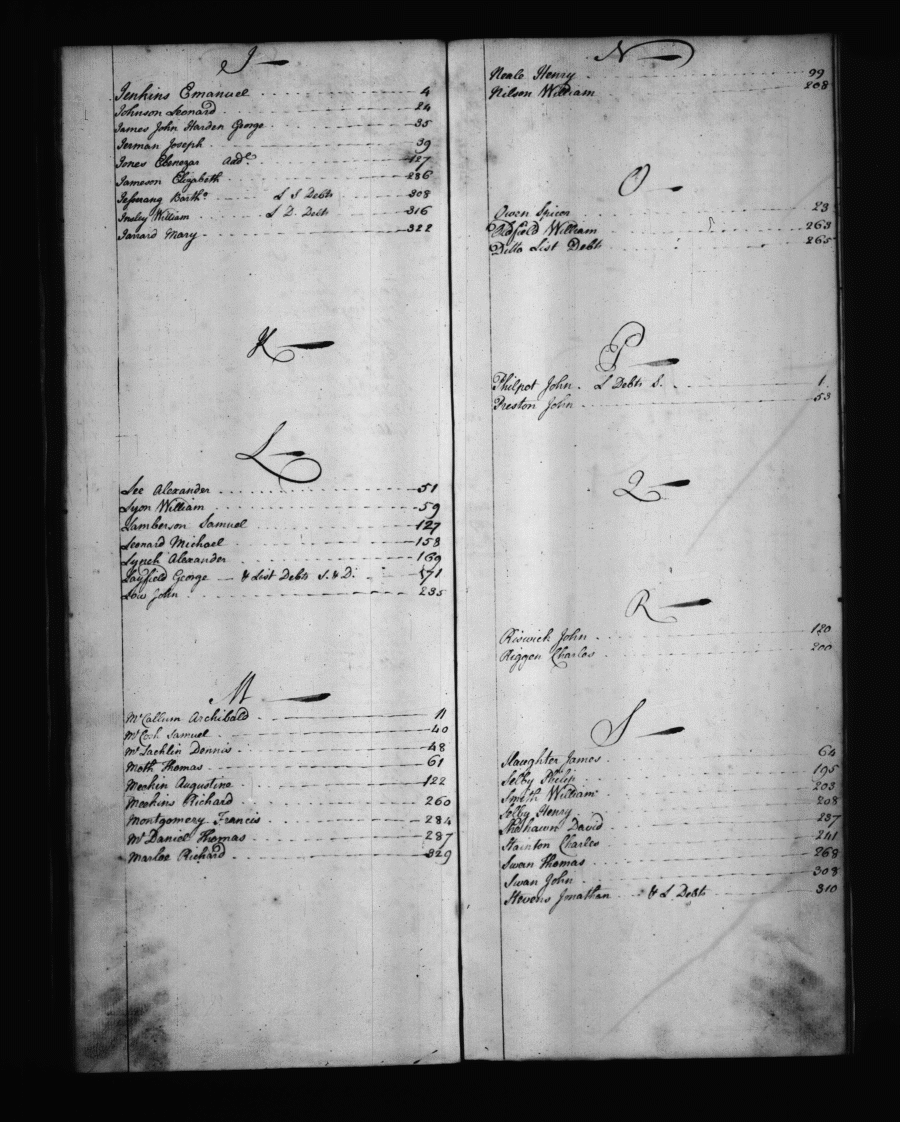 J
Jenkins Emanuel 4
Johnson Leonard 24
James John Harden George 35
Jerman Joseph 39
Jones Ebenezar 127
Jameson Elizabeth 286
Barth.o L S Debts 308
Insley William L D. Debt 316
Mary 322
K
L
Lee Alexander 51
Lyon William 59
Lamberson Samuel 127
Leonard Michael 158
Lynch Alexander 169
Layfield George & List Debts S. & D. 171
Low John 235
M
Mc Callum Archibald 11
Mc Cosh Samuel 40
Mc Lachlin Dennis 48
Moth Thomas 61
Meekin Augustine 122
Meekins Richard 260
Montgomery Francis 284
Mc Daniel Thomas 287
Marloe Richard 329
N
Neale Henry 99
Nilson William 208
O
Owen Spicer 23
Oldfield William 263
Ditto List Debts 265
P
Philpot John L Debts S. 1
Preston John 53
Q
R
Riswick John 120
Riggen Charles 200
S
Slaughter James 64
Selby Philip 195
Smith William 203
Selby Henry 208
David 237
Stainton Charles 241
Swan Thomas 268
Swan John 308
Stevens Jonathan & L Debts 310